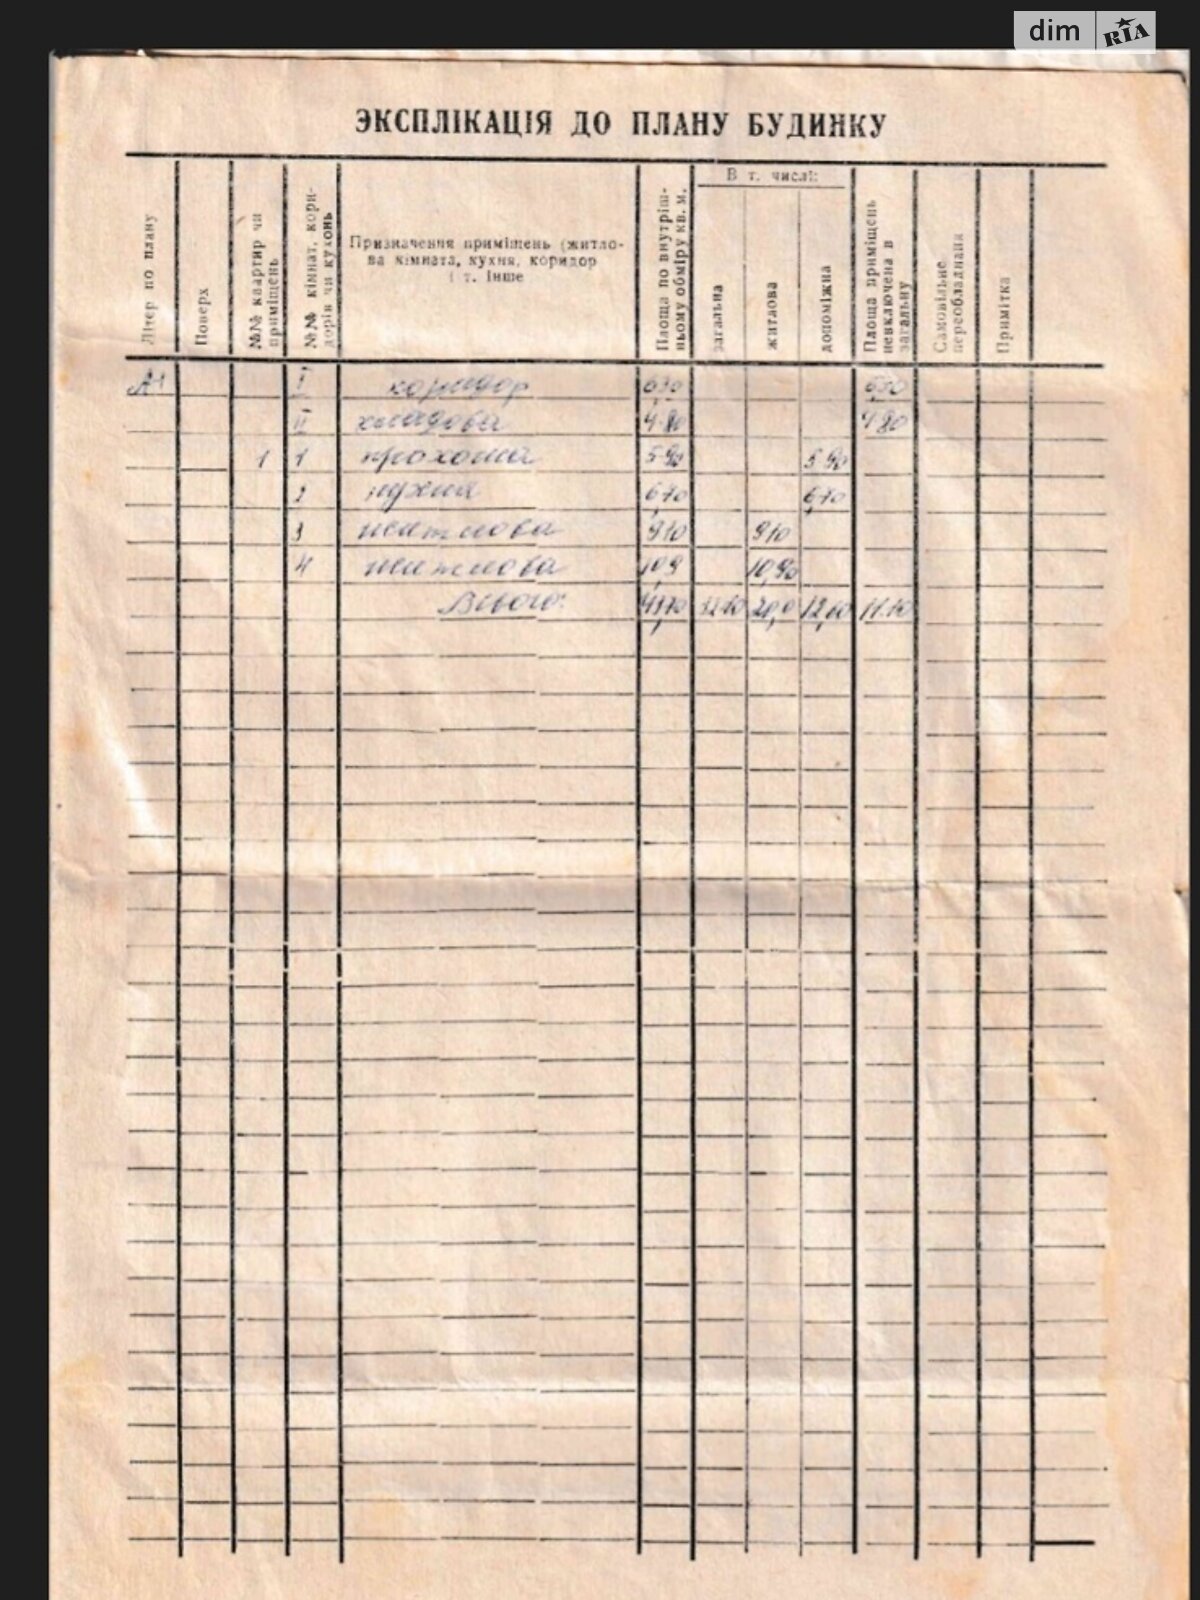 dim RIA
ЭКСПЛІКАЦІЯ ДО ПЛАНУ БУДИНКУ
Літер по плану
Поверх
№№ квартир чи приміщень
№№ кімнат, кори-
дорів чи кухонь
Призначення приміщень (житло-
ва кімната, кухня, коридор
і т. інше
Площа по внутріш-
ньому обміру кв. м.
В т. числі:
загальна
житлова
допоміжна
Площа приміщень
невключена в
загальну
Самовільне
переобладнана
Примітка
А-1 I коридор 6,30 6,30
II кладова 4,80 4,80
1 1 прохожа 5,90 5,90
2 кухня 6,70 6,70
3 житлова 9,10 9,10
4 житлова 10,9 10,90
Всього: 43,70 32,60 20,0 12,60 11,10